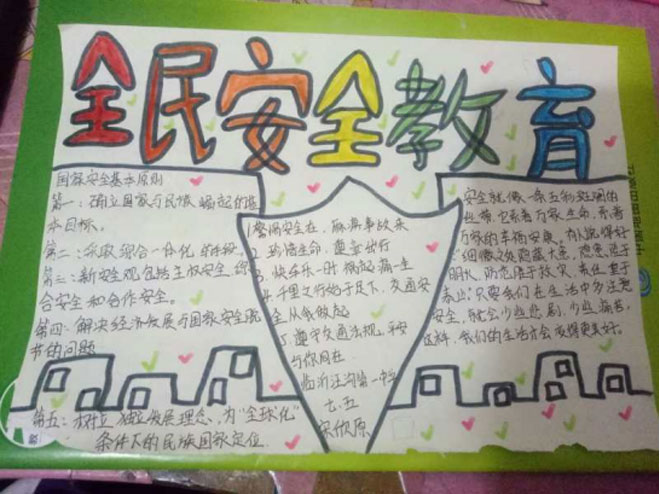 全民安全教育
国家安全基本原则
第一：确立国家与民族崛起的基
本目标。
第二：采取综合一体化的手段。
第三：新安观包括主权安全，综
合安全和合作安全。
第四：解决经济发展与国家安全脱
节的问题
第五：树立独立发展理念，为“全球化”
条件下的民族国家定位.
1.警惕安全在，麻痹事故来
2.珍惜生命，遵章出行
3.快车乐一时，痛一生
4.千里之行始于足下，交通安
全从我做起
5.遵守交通法规，平安
与你同在
临沂汪沟第一中学
七.五
安全就像一条五彩斑斓的
丝带，它系着万家生命，系着
万家的车辆安康。有人说得好
：细微之处隐藏大患，隐患险于
明火，防范胜于救灾，责任重于
泰山；只要我们在生活中多注意
安全，就会少些悲剧，少些痛苦，
这样，我们的生活才会变得更美好。